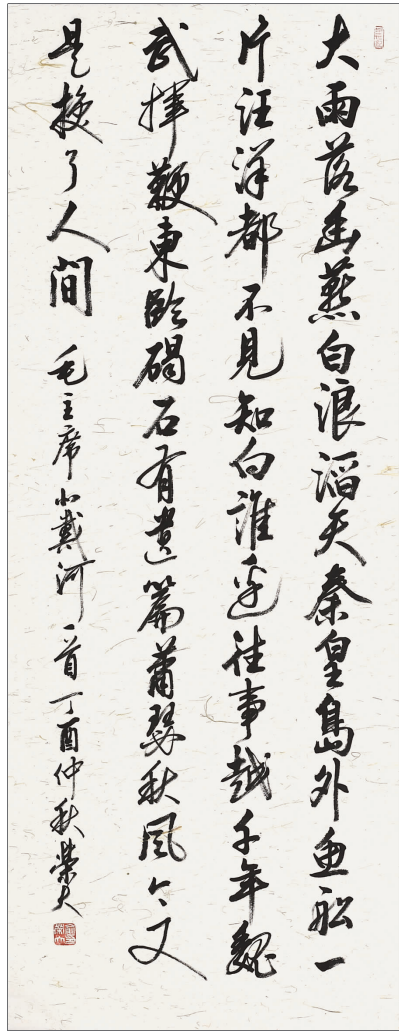 大雨落幽燕白浪滔天秦皇島外魚船一
片汪洋都不見知向誰邊往事越千年魏
武揮鞭東臨碣石有遺篇蕭瑟秋風今又
是換了人間
毛主席北戴河一首丁酉仲秋榮大